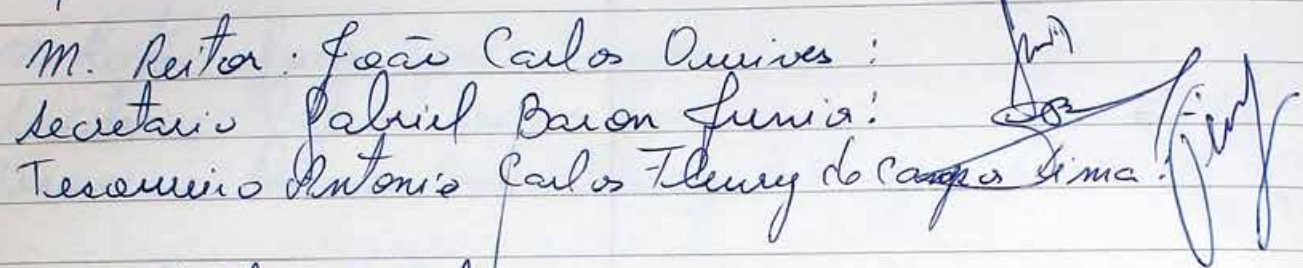 M. Reitor: João Carlos Ourives:
Secretario Gabriel Baron Junior:
Tesoureiro Antonio Carlos Fleury de Campos Lima: